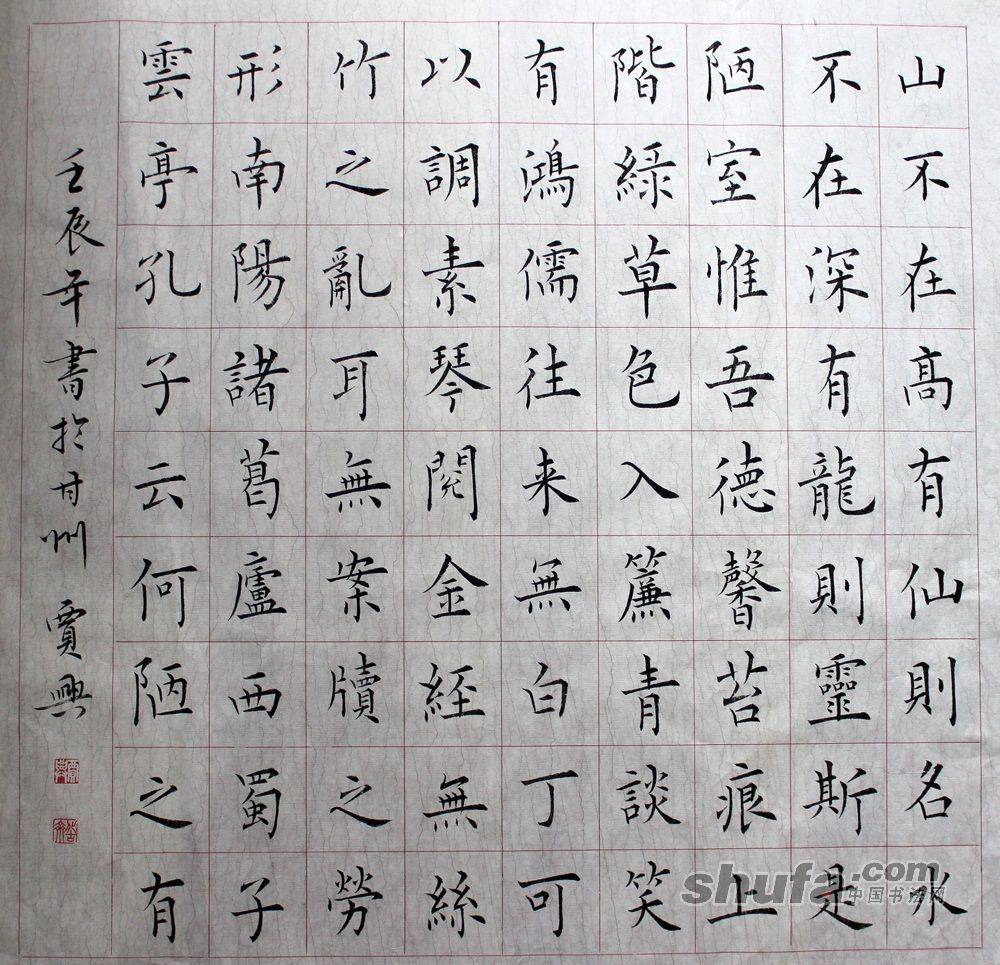 山不在高有仙則名水
不在深有龍則靈斯是
陋室惟吾德馨苔痕上
階綠草色入簾青談笑
有鴻儒往来無白丁可
以調素琴閱金經無絲
竹之亂耳無案牘之勞
形南陽諸葛廬西蜀子
雲亭孔子云何陋之有
壬辰年書於甘州 賈興
shufa.com
中国书法网